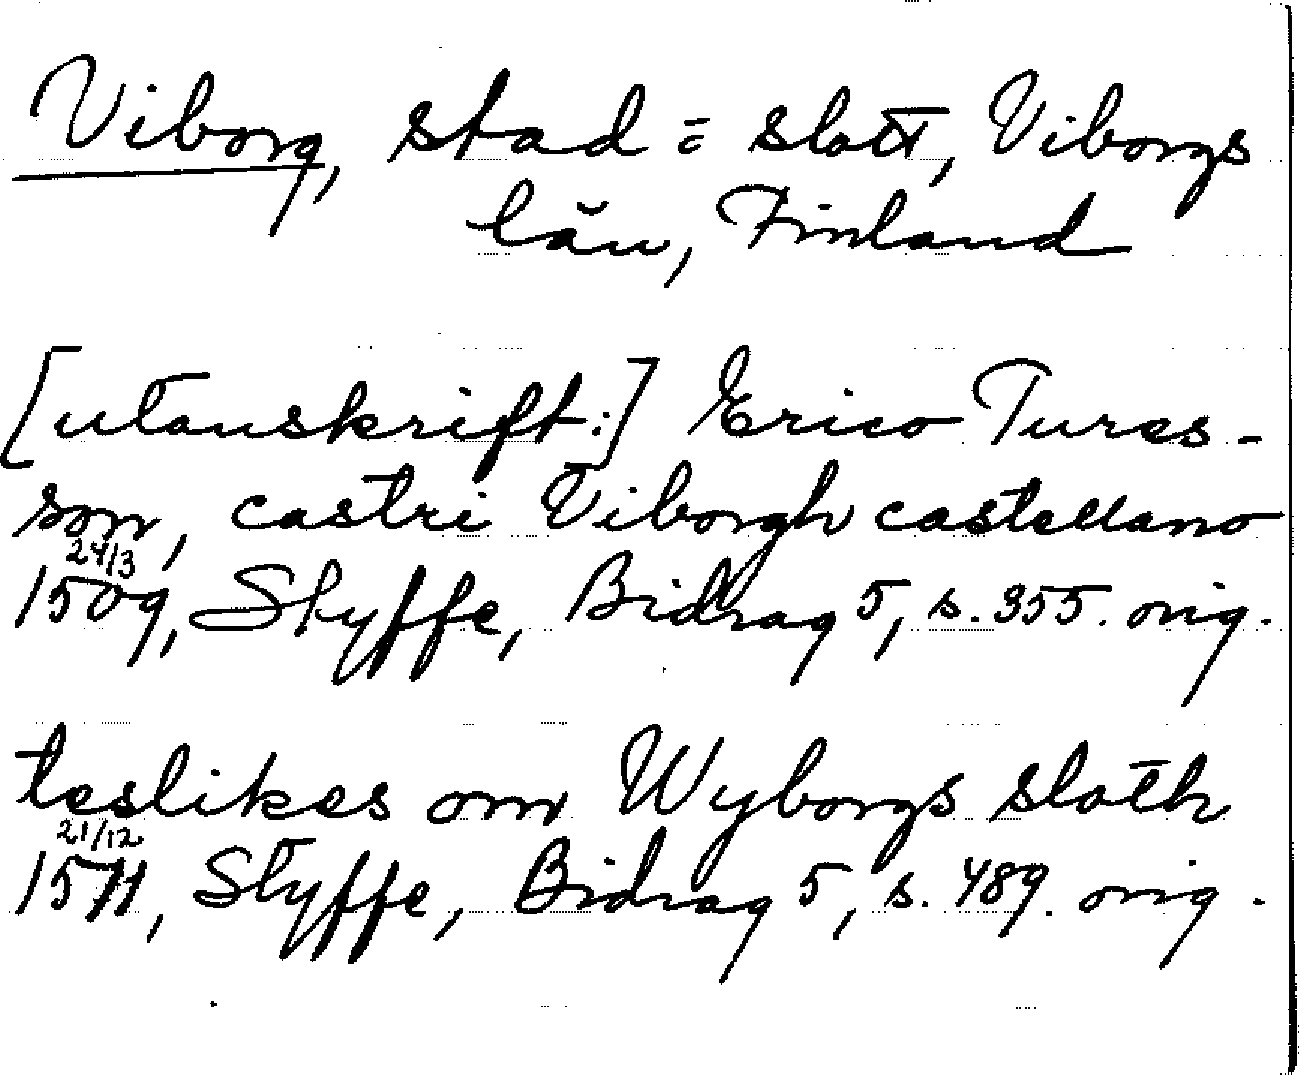 Viborg, stad = slott, Viborgs
län, Finland
[utanskrift:] Erico Tures-
son, castri Viborgh castellano
24/3
1509, Styffe, Bidrag 5, s. 355. orig.
teslikes om Wyborgs sloth
21/12
1511, Styffe, Bidrag 5, s. 489. orig.